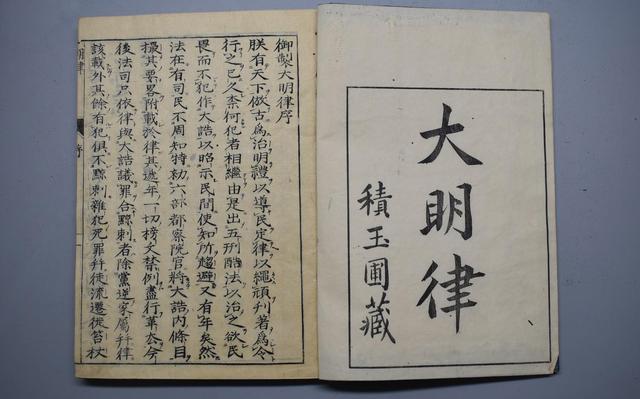 大明律
積玉圃藏
御製大明律序
朕有天下倣古爲治明禮以導民定律以繩頑刋著爲令
行之已久柰何犯者相繼由是出五刑酷法以治之欲民
畏而不犯作大誥以昭示民間使知所趨避又有年矣然
法在有司民不周知特勅六部都察院官將大誥内條目
撮其要畧附載於律其逓年一切榜文禁例盡行革去今
後法司只依律與大誥議罪合黥刺者除黨逆家屬幷律
該載外其餘有犯俱不黥刺雜犯死罪幷徒流遷徙笞杖
明律 序